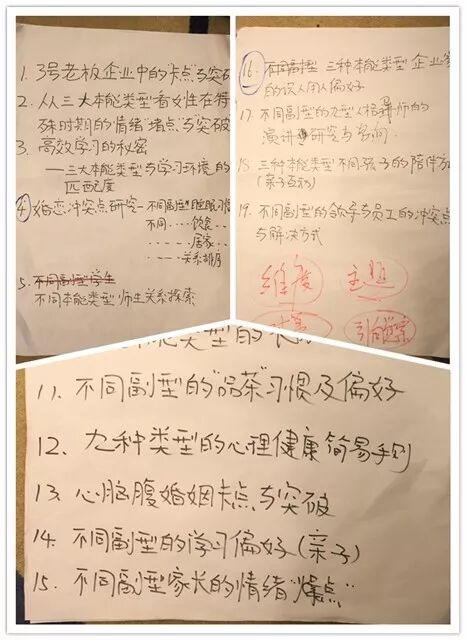 1. 3号老板企业中的"卡点"与突破
2. 从三大本能类型看女性在特
殊时期的情绪"堵点"与突破
3. 高效学习的秘密
——三大本能类型与学习环境的
匹配度
4 婚恋冲突点研究-不同副型"睡眠习惯
不同····饮食--
- - - - 居家--
- - - - 关系排序
5. 不同副型学生
不同本能类型师生关系探索
16. 不同副型 三种本能类型 企业家
的识人用人偏好
17. 不同副型的九型人格导师的
演讲 研究与
18. 三种本能类型不同孩子的陪伴方
(亲子互动)
19. 不同副型的领导与员工的冲突点
与解决方式
维度
主题
能类型的
11. 不同副型的"品茶"习惯及偏好
12. 九种类型的心理健康简易手册
13. 心脑腹婚姻卡点与突破
14. 不同副型的学习偏好(亲子)
15. 不同副型家长的情绪"爆点"